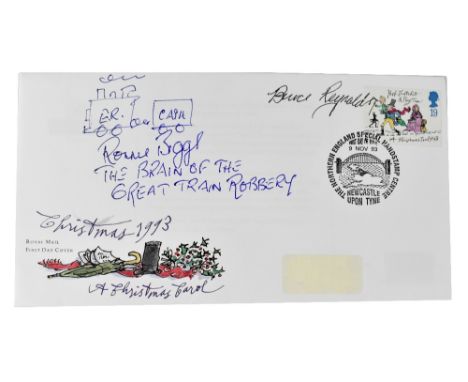 E.R.
CASH
Bruce Reynolds
19
A Christmas Carol
Ronnie Biggs
THE BRAIN OF THE
GREAT TRAIN ROBBERY
THE NORTHERN ENGLAND SPECIAL HANDSTAMP CENTRE
9 NOV 93
NEWCASTLE
UPON TYNE
Christmas 1993
ROYAL MAIL
FIRST DAY COVER
A Christmas Carol